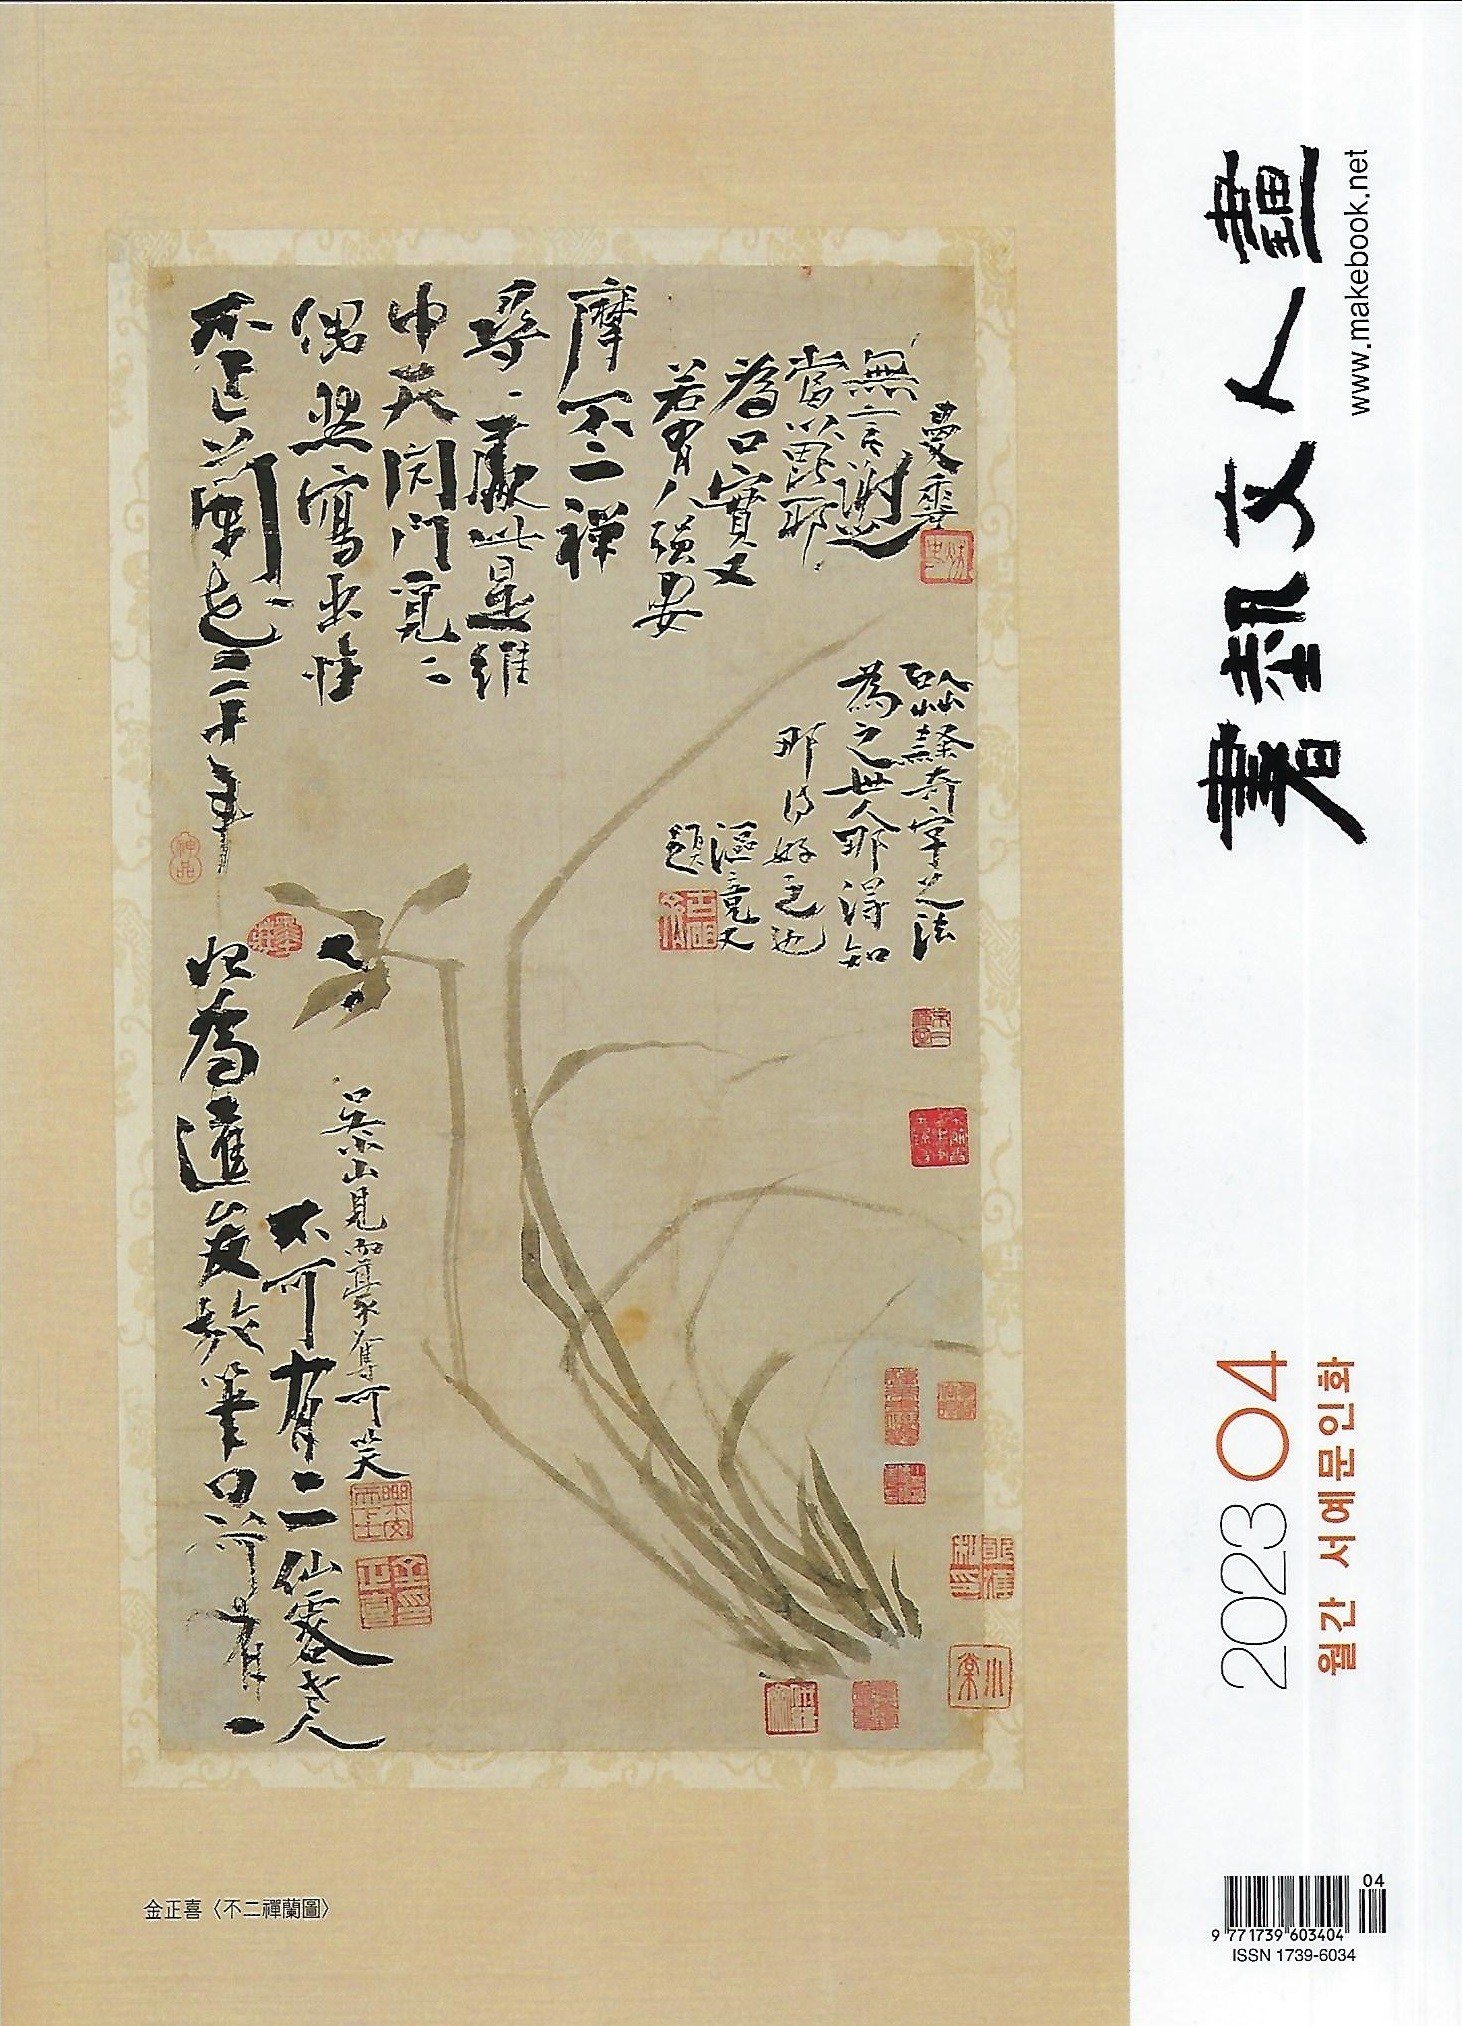 不作蘭花二十年
偶然寫出性
中天閉門覓〻
尋〻處此是維
摩不二禪
若有人强要
爲口實又
當以毘耶
無言謝之
曼香
以艸隷奇字之法
爲之世人那得知
那得好之也
漚竟又
題
始爲達俊放筆只可有一
不可有二仙客老人
吳小山見而豪奪可笑
神品
金正喜〈不二禪蘭圖〉
書藝文人畫
www.makebook.net
2023 04
월간 서예문인화
04
9 771739 603404
ISSN 1739-6034